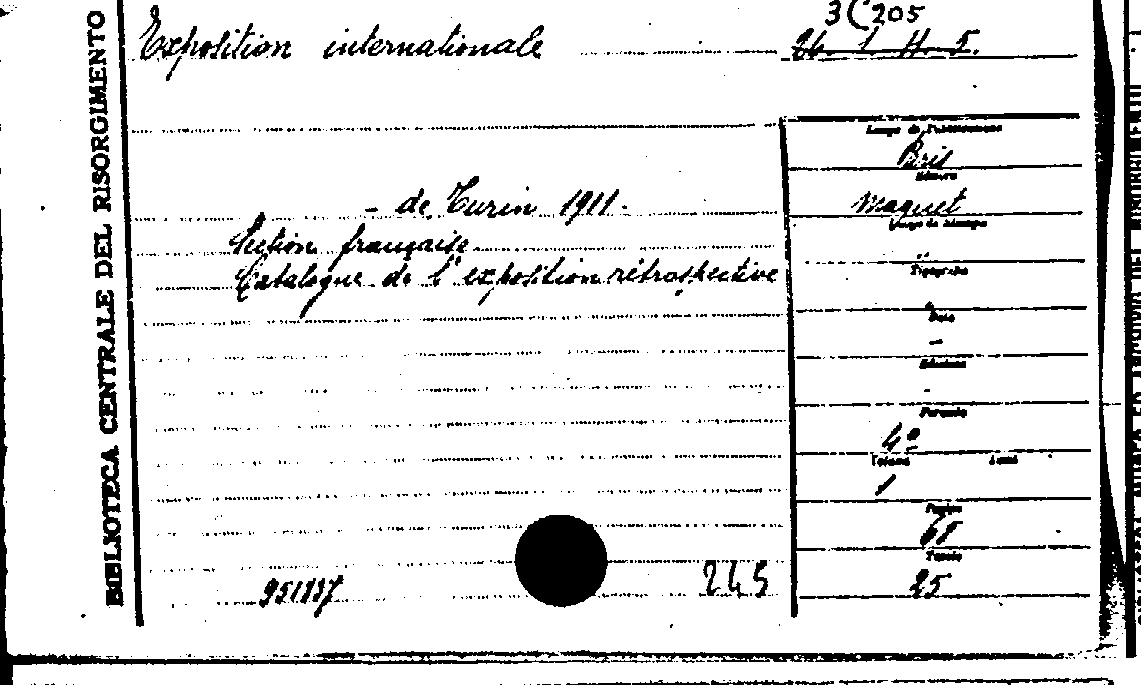 BIBLIOTECA CENTRALE DEL RISORGIMENTO
3C 205
Exposition internationale
26. 1. H. 5.
- de Turin 1911.
Section française
Catalogue de l'exposition rétrospective
Luogo di Pubblicazione
Paris
Maquet
Luogo di Stampa
"
Tipografia
"
Data
-
Edizione
-
Formato
4º
Volumi
1
Pagine
68
Tavole
25
951937
245